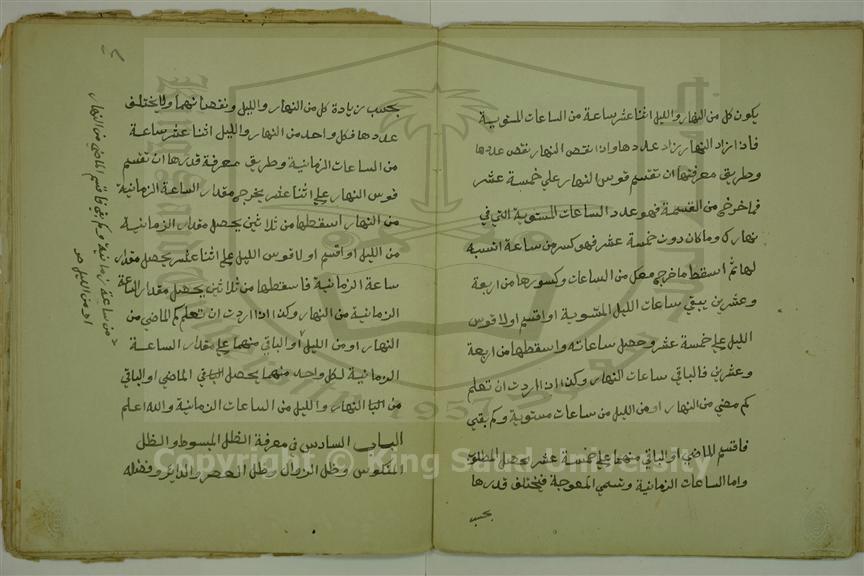 يكون كل من النهار والليل اثنا عشر ساعة من الساعات المستوية
فاذا زاد النهار زاد عددها واذا نقص النهار نقص عددها
وطريق معرفتها ان تقسم قوس النهار علي خمسة عشر
فما خرج من القسمة فهو عدد الساعات المستوية التي في
نهارك وما كان دون خمسة عشر فهو كسر من ساعة انسبه
لها ثم اسقط ما خرج معك من الساعات وكسورها من اربعة
وعشرين يبقي ساعات الليل المستوية او اقسم اولا قوس
الليل علي خمسة عشر وحصل ساعاته واسقطها من اربعة
وعشرين فالباقي ساعات النهار وكذا اذا اردت ان تعلم
كم مضي من النهار او من الليل من ساعات مستوية وكم بقي
فاقسم الماضي او الباقي منهما علي خمسة عشر يحصل المطلوب
واما الساعات الزمانية وتسمي المعوجة فيختلف قدرها
بحسب
بحسب زيادة كل من النهار والليل ونقصانهما ولا يختلف
عددها فكل واحد من النهار والليل اثنا عشر ساعة
من الساعات الزمانية وطريق معرفة قدرها ان تقسم
قوس النهار علي اثنا عشر يخرج مقدار الساعة الزمانية
من النهار اسقطها من ثلاثين يحصل مقدار الزمانية
من الليل او اقسم اولا قوس الليل علي اثنا عشر يحصل مقدار
ساعة الزمانية فاسقطها من ثلاثين يحصل مقدار الساعة
الزمانية من النهار وكذا اذا اردت ان تعلم كم الماضي من
النهار او من الليل او الباقي منهما علي مقدار الساعة
الزمانية لكل واحد منهما يحصل الباقي الماضي او الباقي
من النهار والليل من الساعات الزمانية والله اعلم
الباب السادس في معرفة الظل المبسوط والظل
المنكوس وظل الزوال وظل العصر والدائر وفضله
من ساعة زمانية وكم بقي فاقسم الماضي من النهار
او من الليل صح
Copyright © King Saud University
1957